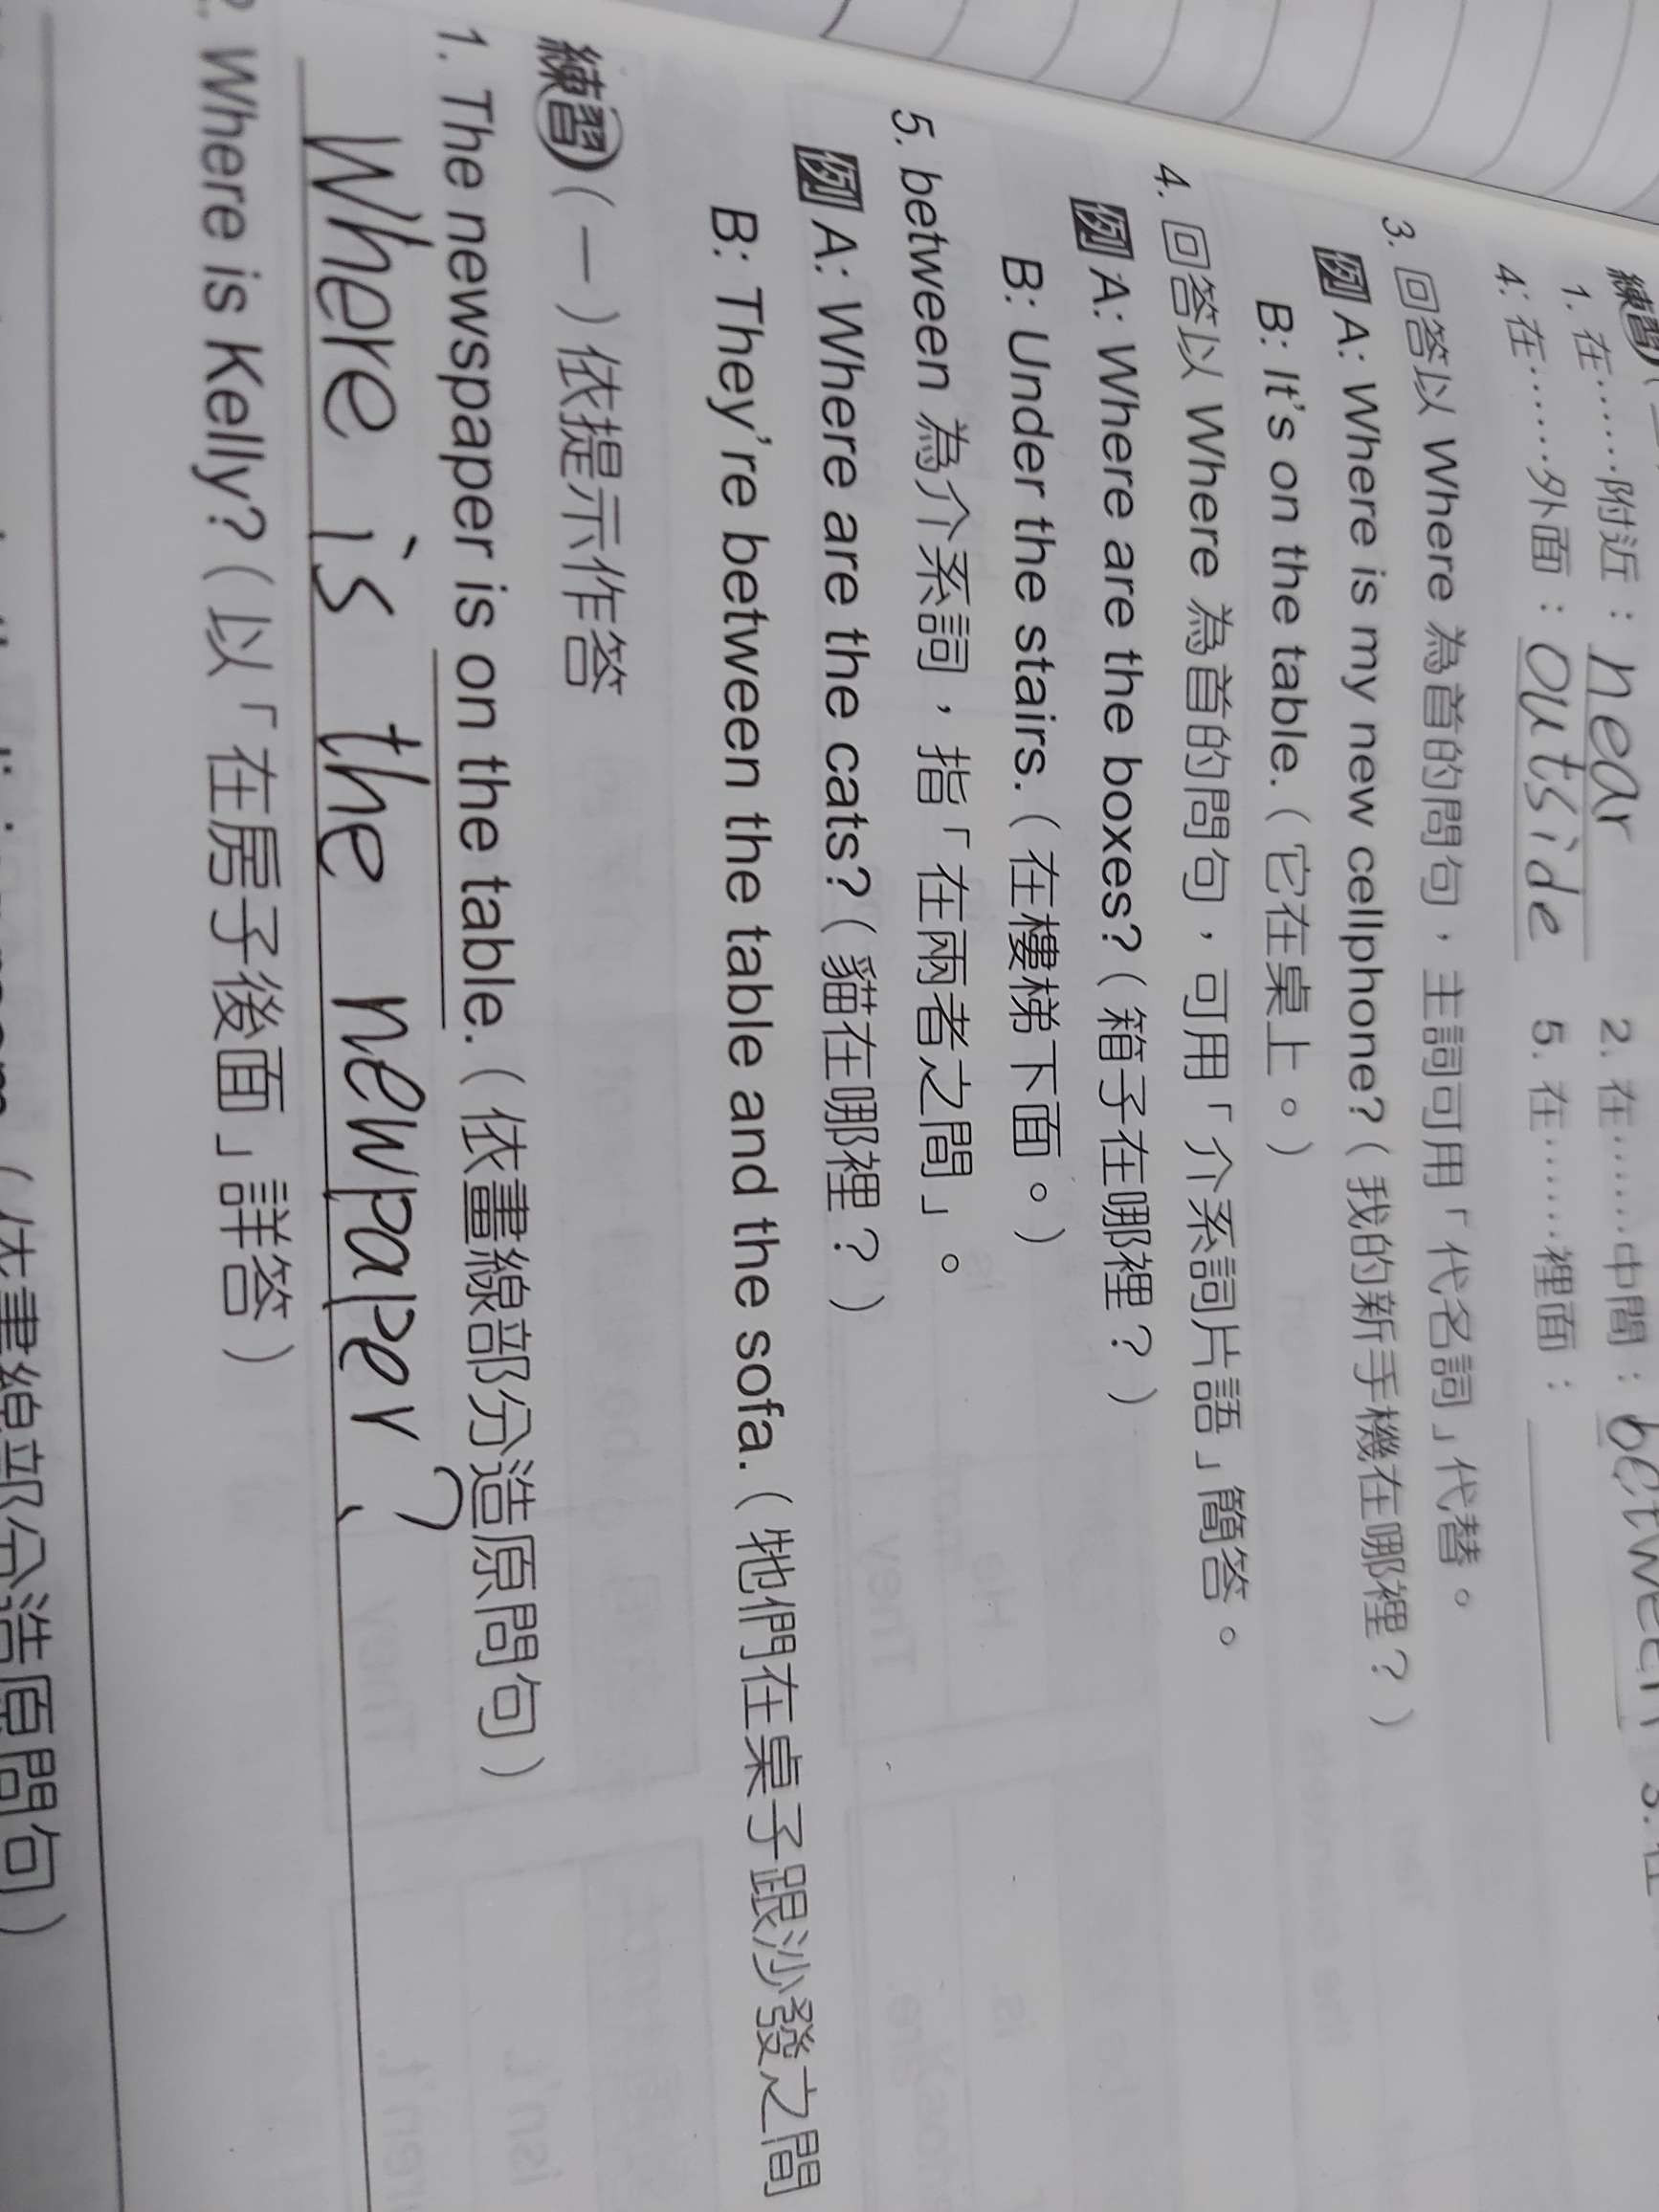 練習
1. 在……附近：near 2. 在……中間：between 3. 在
4. 在……外面：outside 5. 在……裡面：
3. 回答以 Where 為首的問句，主詞可用「代名詞」代替。
例 A: Where is my new cellphone?（我的新手機在哪裡？）
B: It's on the table.（它在桌上。）
4. 回答以 Where 為首的問句，可用「介系詞片語」簡答。
例 A: Where are the boxes?（箱子在哪裡？）
B: Under the stairs.（在樓梯下面。）
5. between 為介系詞，指「在兩者之間」。
例 A: Where are the cats?（貓在哪裡？）
B: They're between the table and the sofa.（牠們在桌子跟沙發之間
練習（一）依提示作答
1. The newspaper is on the table.（依畫線部分造原問句）
Where is the newpaper?
2. Where is Kelly?（以「在房子後面」詳答）
（依畫線部分造原問句）